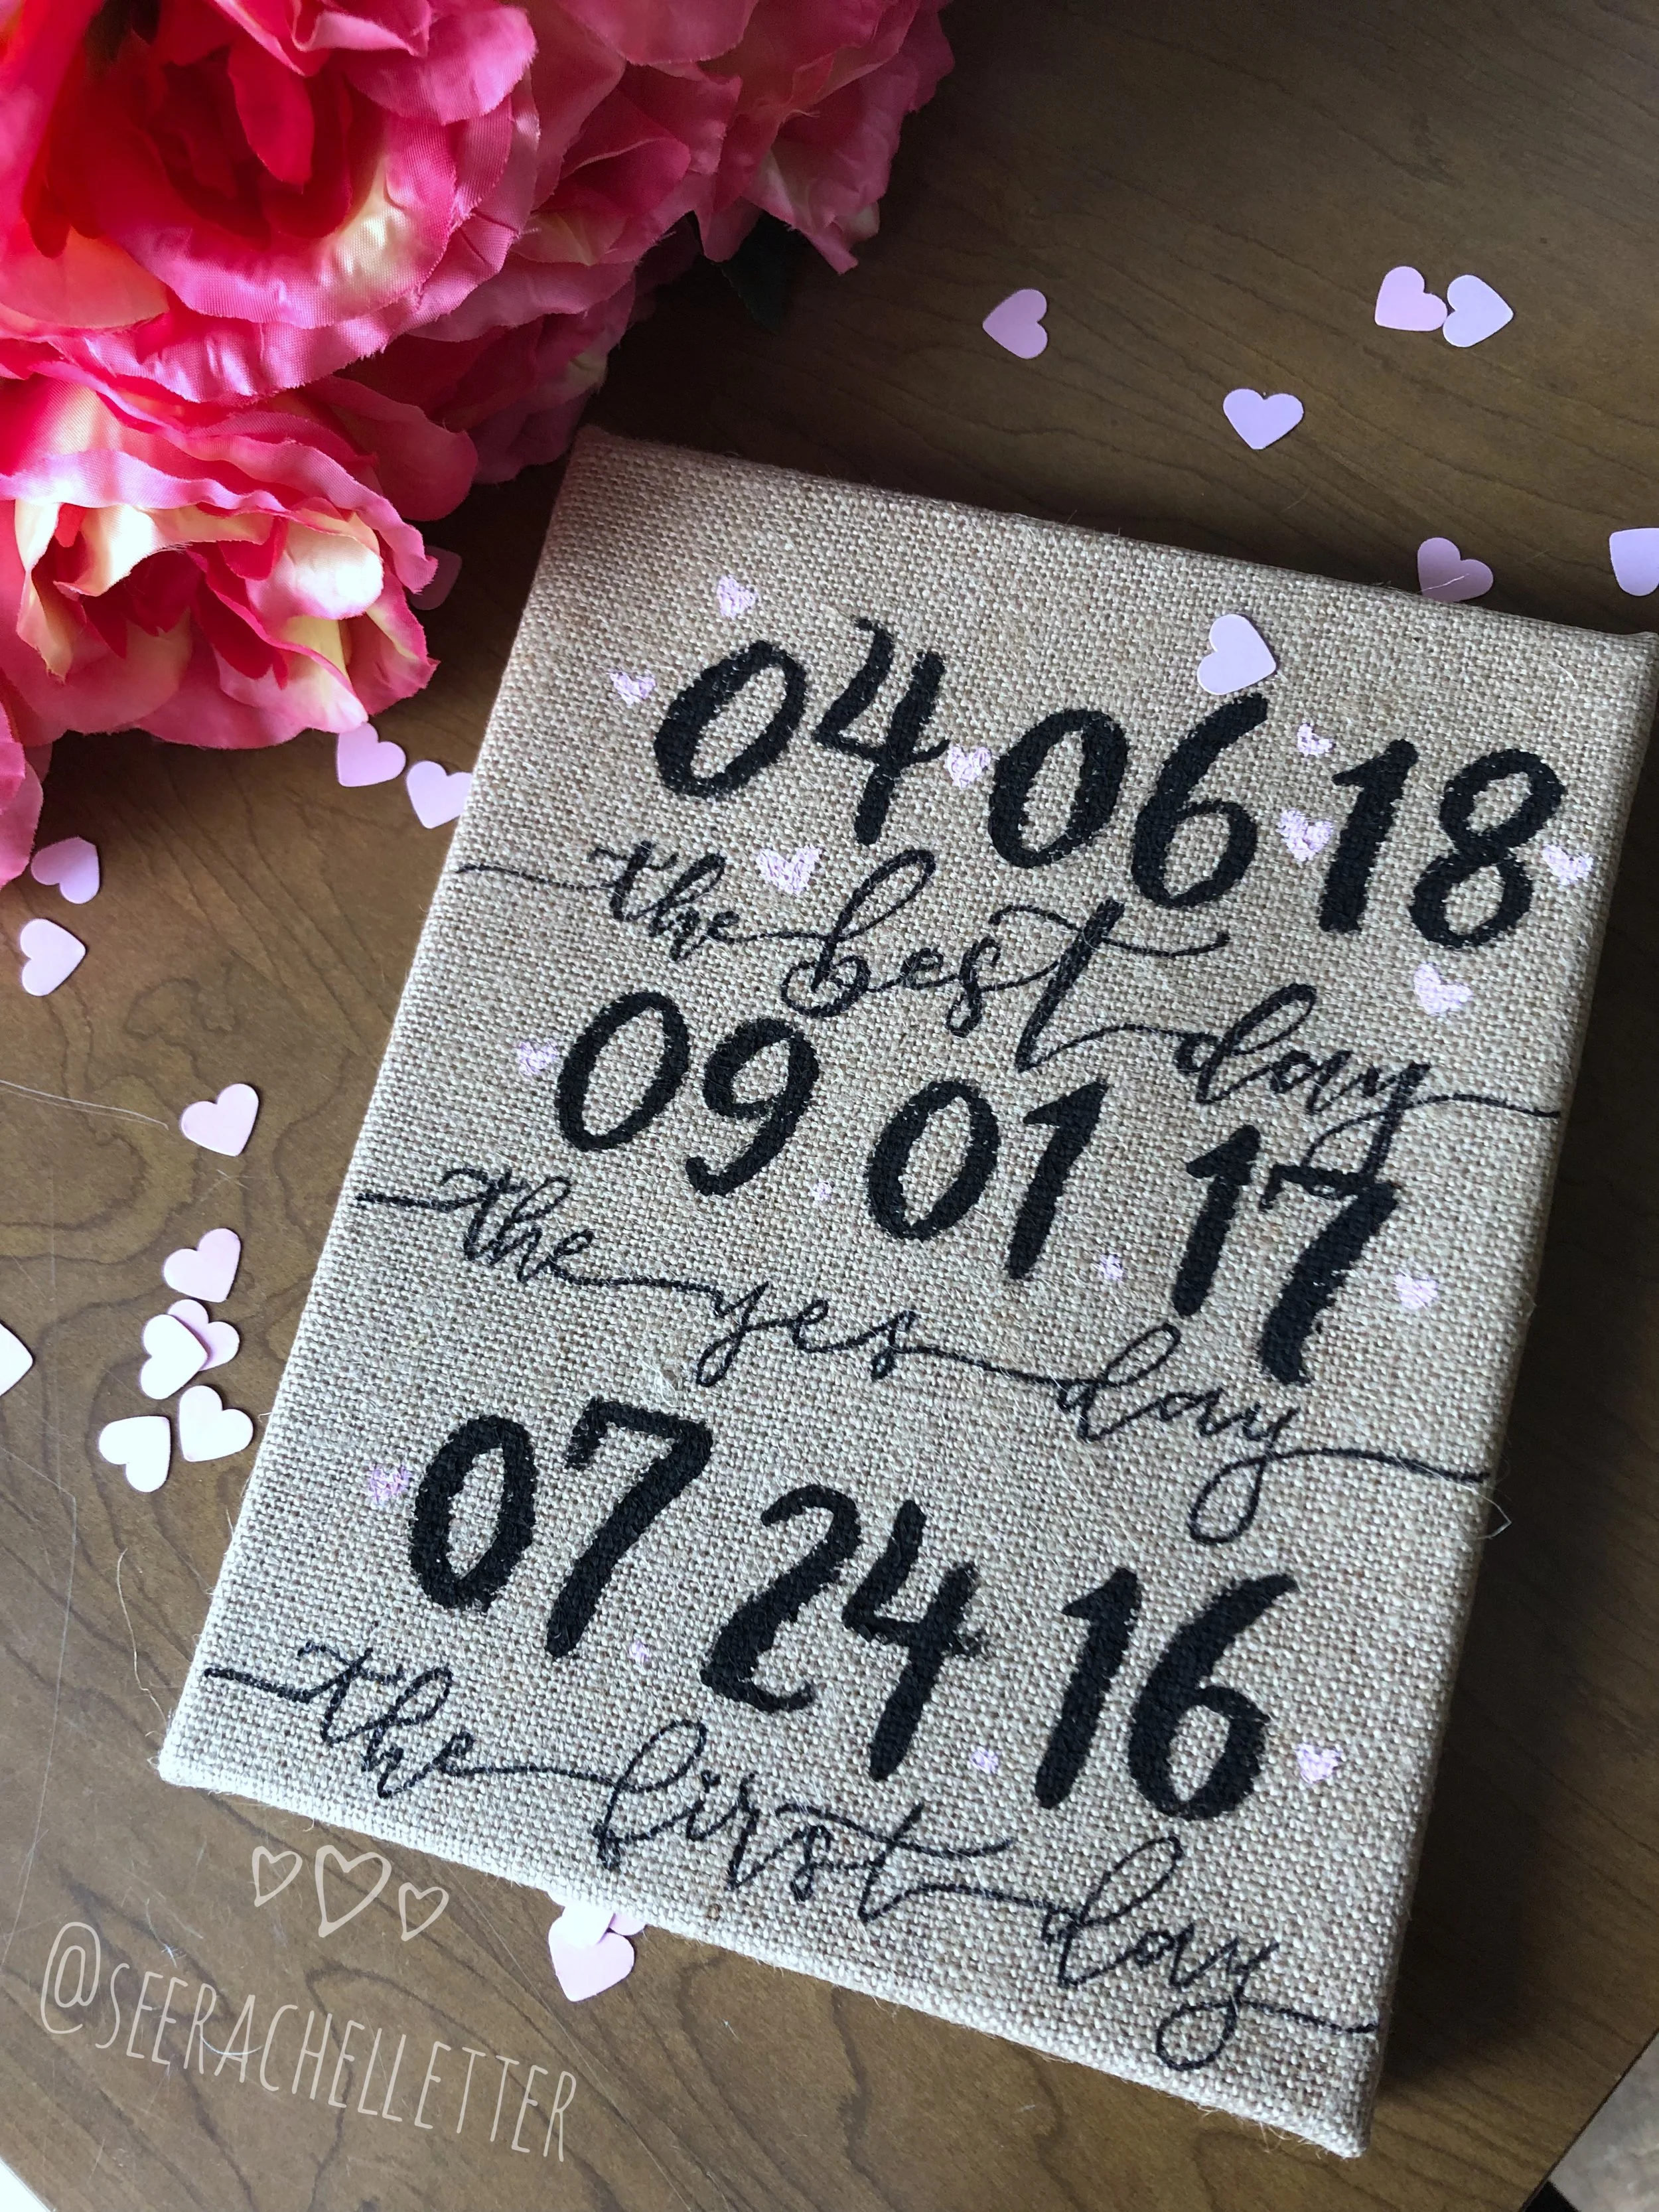 04 06 18
the best day
09 01 17
the yes day
07 24 16
the first day
@SEERACHELLETTER